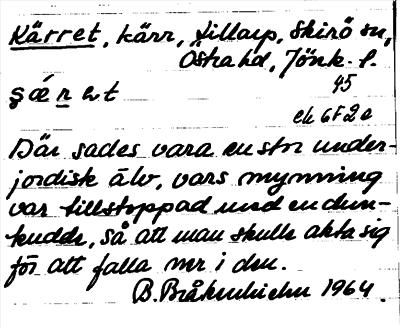 Kärret, kärr, tillarp, Skirö sn,
Östra hd, Jönk. l.
45
ek 6F2e
Där sades vara en stor under-
jordisk älv, vars mynning
var tillstoppad med en dun-
kudde, så att man skulle akta sig
för att falla ner i den.
1964.